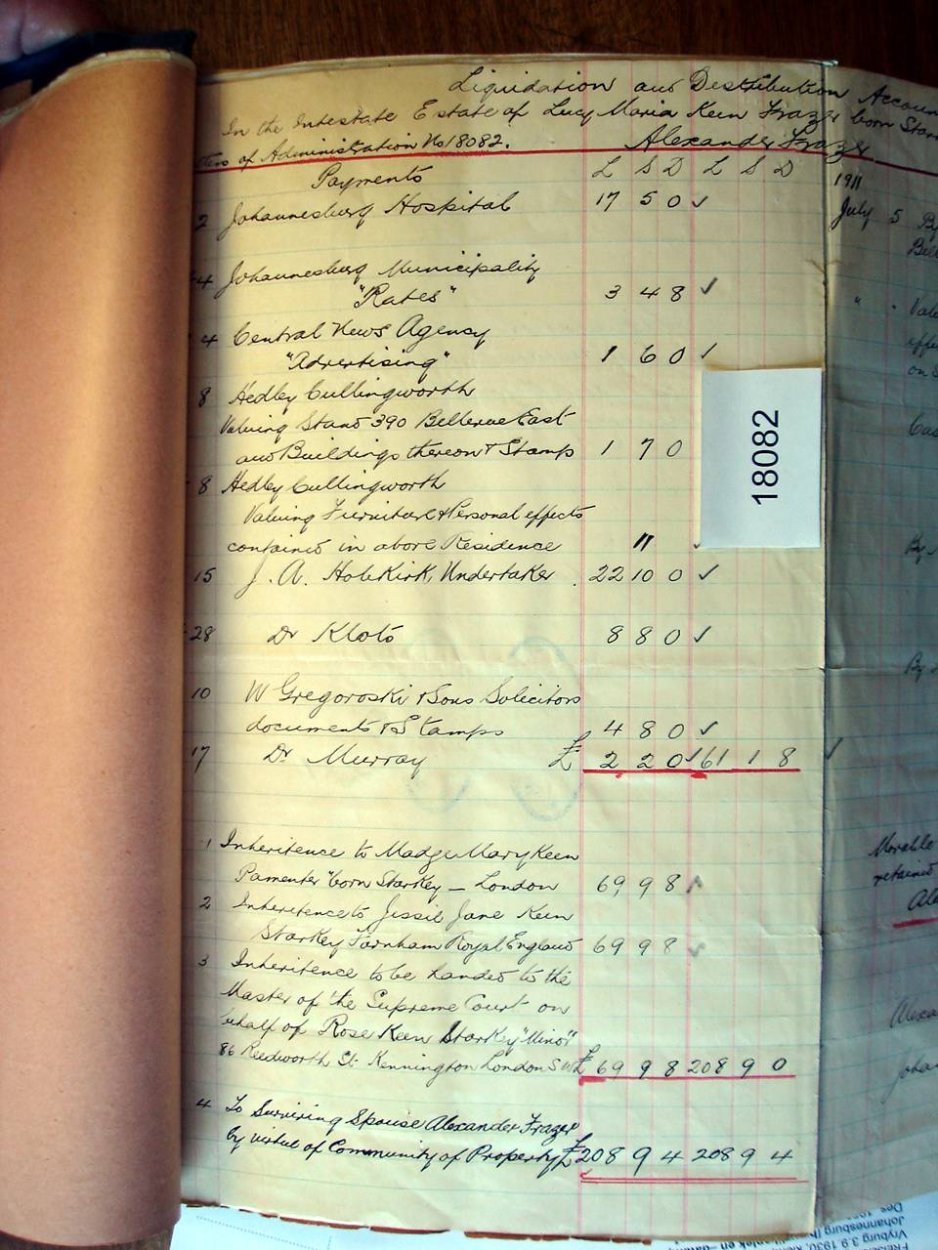 Liquidation and Distribution Accoun
In the Intestate Estate of Lucy Maria Keen Frazer born Star
ters of Administration No 18082. Alexander Frazer
Payments L S D L S D
2 Johannesburg Hospital 17 5 0 ✓
4 Johannesburg Municipality
"Rates" 3 4 8 ✓
4 Central News Agency
"Advertising" 1 6 0 ✓
8 Hedley Cullingworth
Valuing Stand 390 Bellevue East
and Buildings thereon & Stamp 1 7 0
8 Hedley Cullingworth
Valuing Furniture & Personal effects
contained in above Residence 11
15 J. A. Hobkirk, Undertaker 22 10 0 ✓
28 Dr Kloto 8 8 0 ✓
10 W Gregoroski & Sons Solicitors
documents & Stamps 4 8 0 ✓
17 Dr Murray £ 2 2 0 ✓ 61 1 8 ✓
1 Inheritence to Madge Mary Keen
Pamenter "born StarKey – London 69 9 8
2 Inheritence to Jessie Jane Keen
StarKey Farnham Royal England 69 9 8 ✓
3 Inheritence to be handed to the
Master of the Supreme Court on
behalf of Rose Keen StarKey "Minor"
86 Reedworth St. Kennington London S W £ 69 9 8 208 9 0
4 To Surviving Spouse Alexander Frazer
by virtue of Community of Property £ 208 9 4 208 9 4
18082
1911
July 5 By
Bell
" " Valu
effe
on S
Cas
By
By
Movable
retained
Ale
Alexa
Johan
Vryburg 3.9.1930,